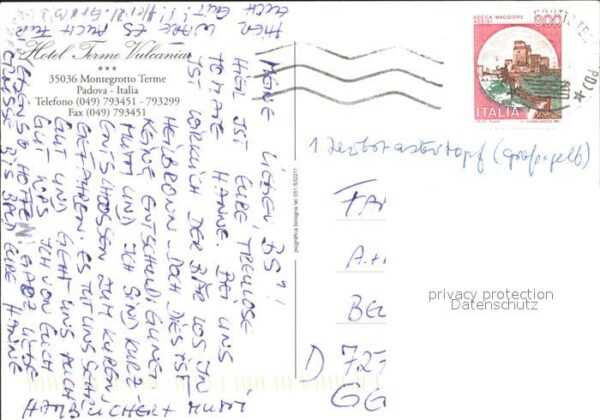 Hotel Terme Vulcania
***
35036 Montegrotto Terme
Padova - Italia
Telefono (049) 793451 - 793299
Fax (049) 793451
MEINE LIEBEN BS'!
HIER IST EURE TREULOSE
TOMATE HANNE. BEI UNS
IST WIRKLICH DER BÄR LOS IN
HEILBRONN. DOCH DIES IST
KEINE ENTSCHULDIGUNG!
MUTTI UND ICH SIND KURZ-
ENTSCHLOSSEN ZUM KUREN
GEFAHREN. ES TUT UNS SEHR
GUT UND GEHT UNS AUCH
GUT WAS ICH VON EUCH
EBENSO HOFFE. GANZ LIEBE
GRÜSSE BIS BALD EURE HANNE
+ MUTTI
HIER WÄRE ES AUCH FÜR
EUCH GUT!!
ROCCA MAGGIORE
ASSISI
800
ITALIA
pografica bologna tel. 051-533211
FA
BE
D 727
GG
privacy protection
Datenschutz